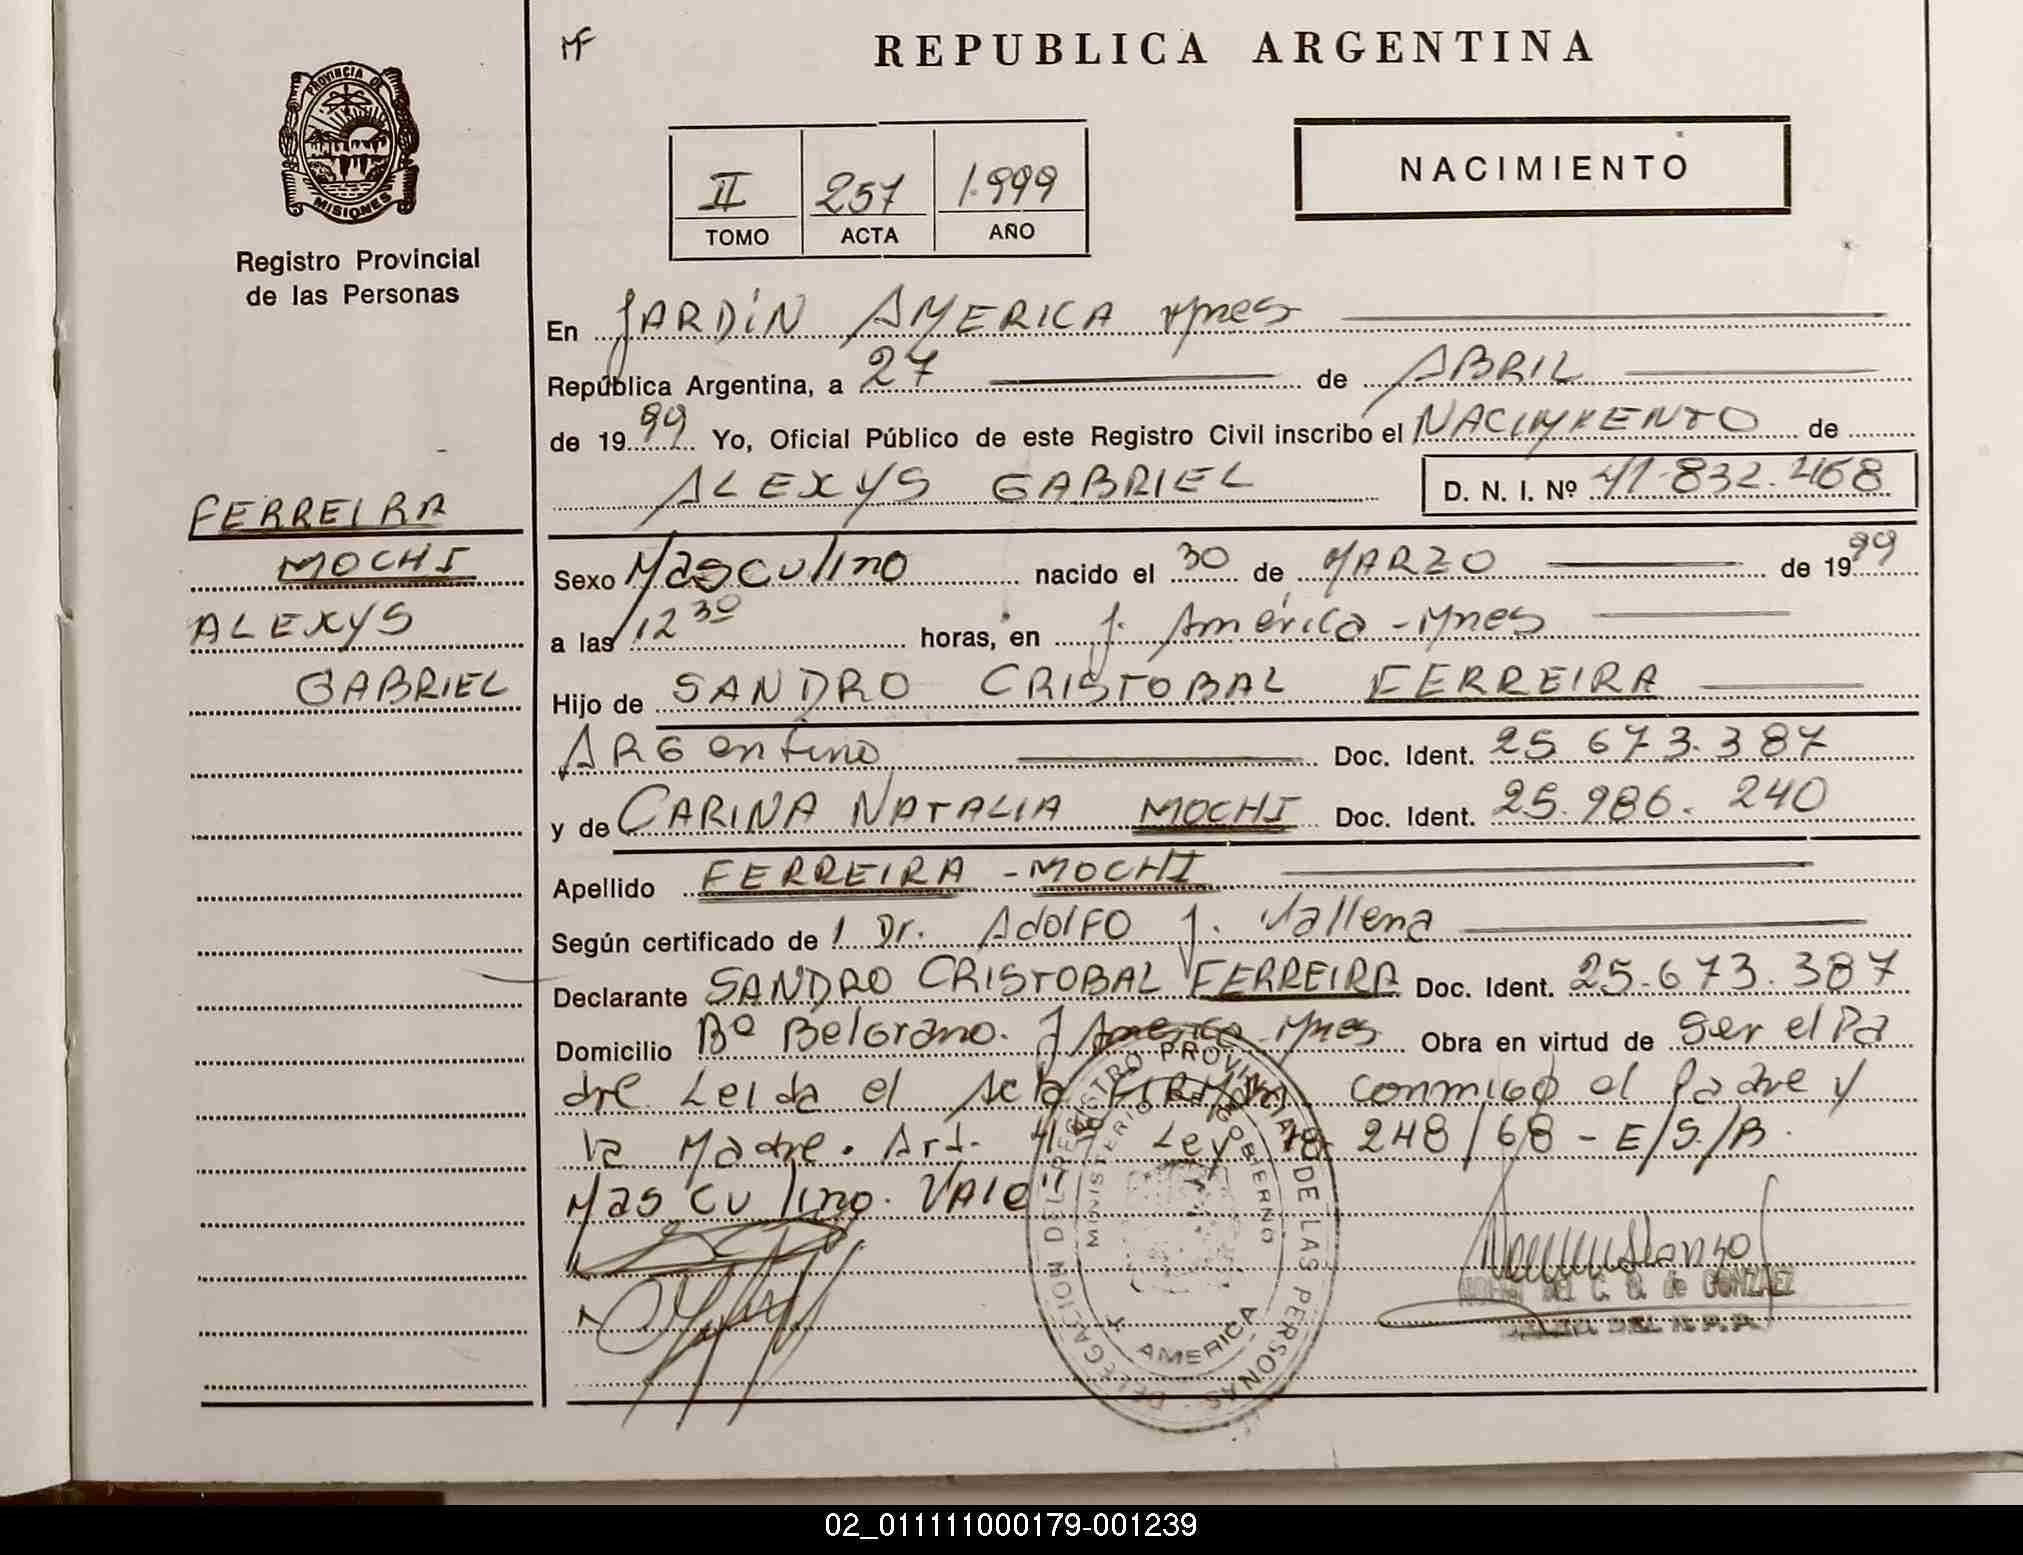 MF
REPUBLICA ARGENTINA
PROVINCIA DE
MISIONES
Registro Provincial
de las Personas
II
257
1.999
TOMO
ACTA
AÑO
NACIMIENTO
En JARDÍN AMERICA Mnes
República Argentina, a 27 de ABRIL
de 1999 Yo, Oficial Público de este Registro Civil inscribo el NACIMIENTO de
ALEXYS GABRIEL D. N. I. Nº 41.832.468
FERREIRA
MOCHI
ALEXYS
GABRIEL
Sexo Masculino nacido el 30 de MARZO de 1999
a las 12 30 horas, en J. América - Mnes
Hijo de SANDRO CRISTOBAL FERREIRA
ARGentino Doc. Ident. 25 673.387
y de CARINA NATALIA MOCHI Doc. Ident. 25.986.240
Apellido FERREIRA - MOCHI
Según certificado de 1 Dr. AdolFO J. Vallena
Declarante SANDRO CRISTOBAL FERREIRA Doc. Ident. 25.673.387
Domicilio Bº Belgrano. J America Mnes Obra en virtud de Ser el Pa
dre Leida el Acta FIRMAN conmigo el Padre y
la Madre. Art. Ley 18 248/68 - E/S./B.
Masculino. Vale"
DELEGACION DEL REGISTRO PROVINCIAL DE LAS PERSONAS
MINISTERIO DE GOBIERNO
J. AMERICA
C. B. de GONZALEZ
DEL R.P.P.
02_011111000179-001239